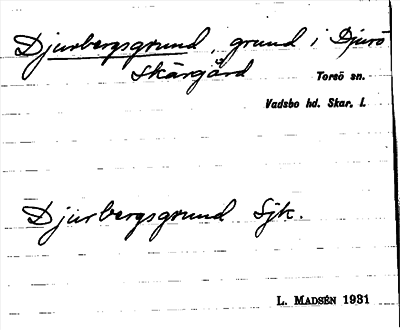 Djurbergsgrund, grund i Djurö
Skärgård Torsö sn.
Vadsbo hd. Skar. l.
Djurbergsgrund Sjk.
L. MADSÉN 1931